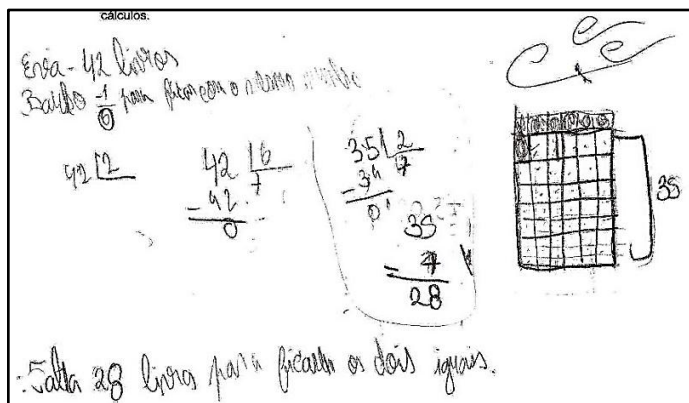 cálculos.
Eva - 42 livros
1/6 para ficar com o mesmo
42 |2
42 |6
- 42 7
0
35 |2
- 34
01
35
- 7
28
35
28 livros para ficarem os dois iguais.